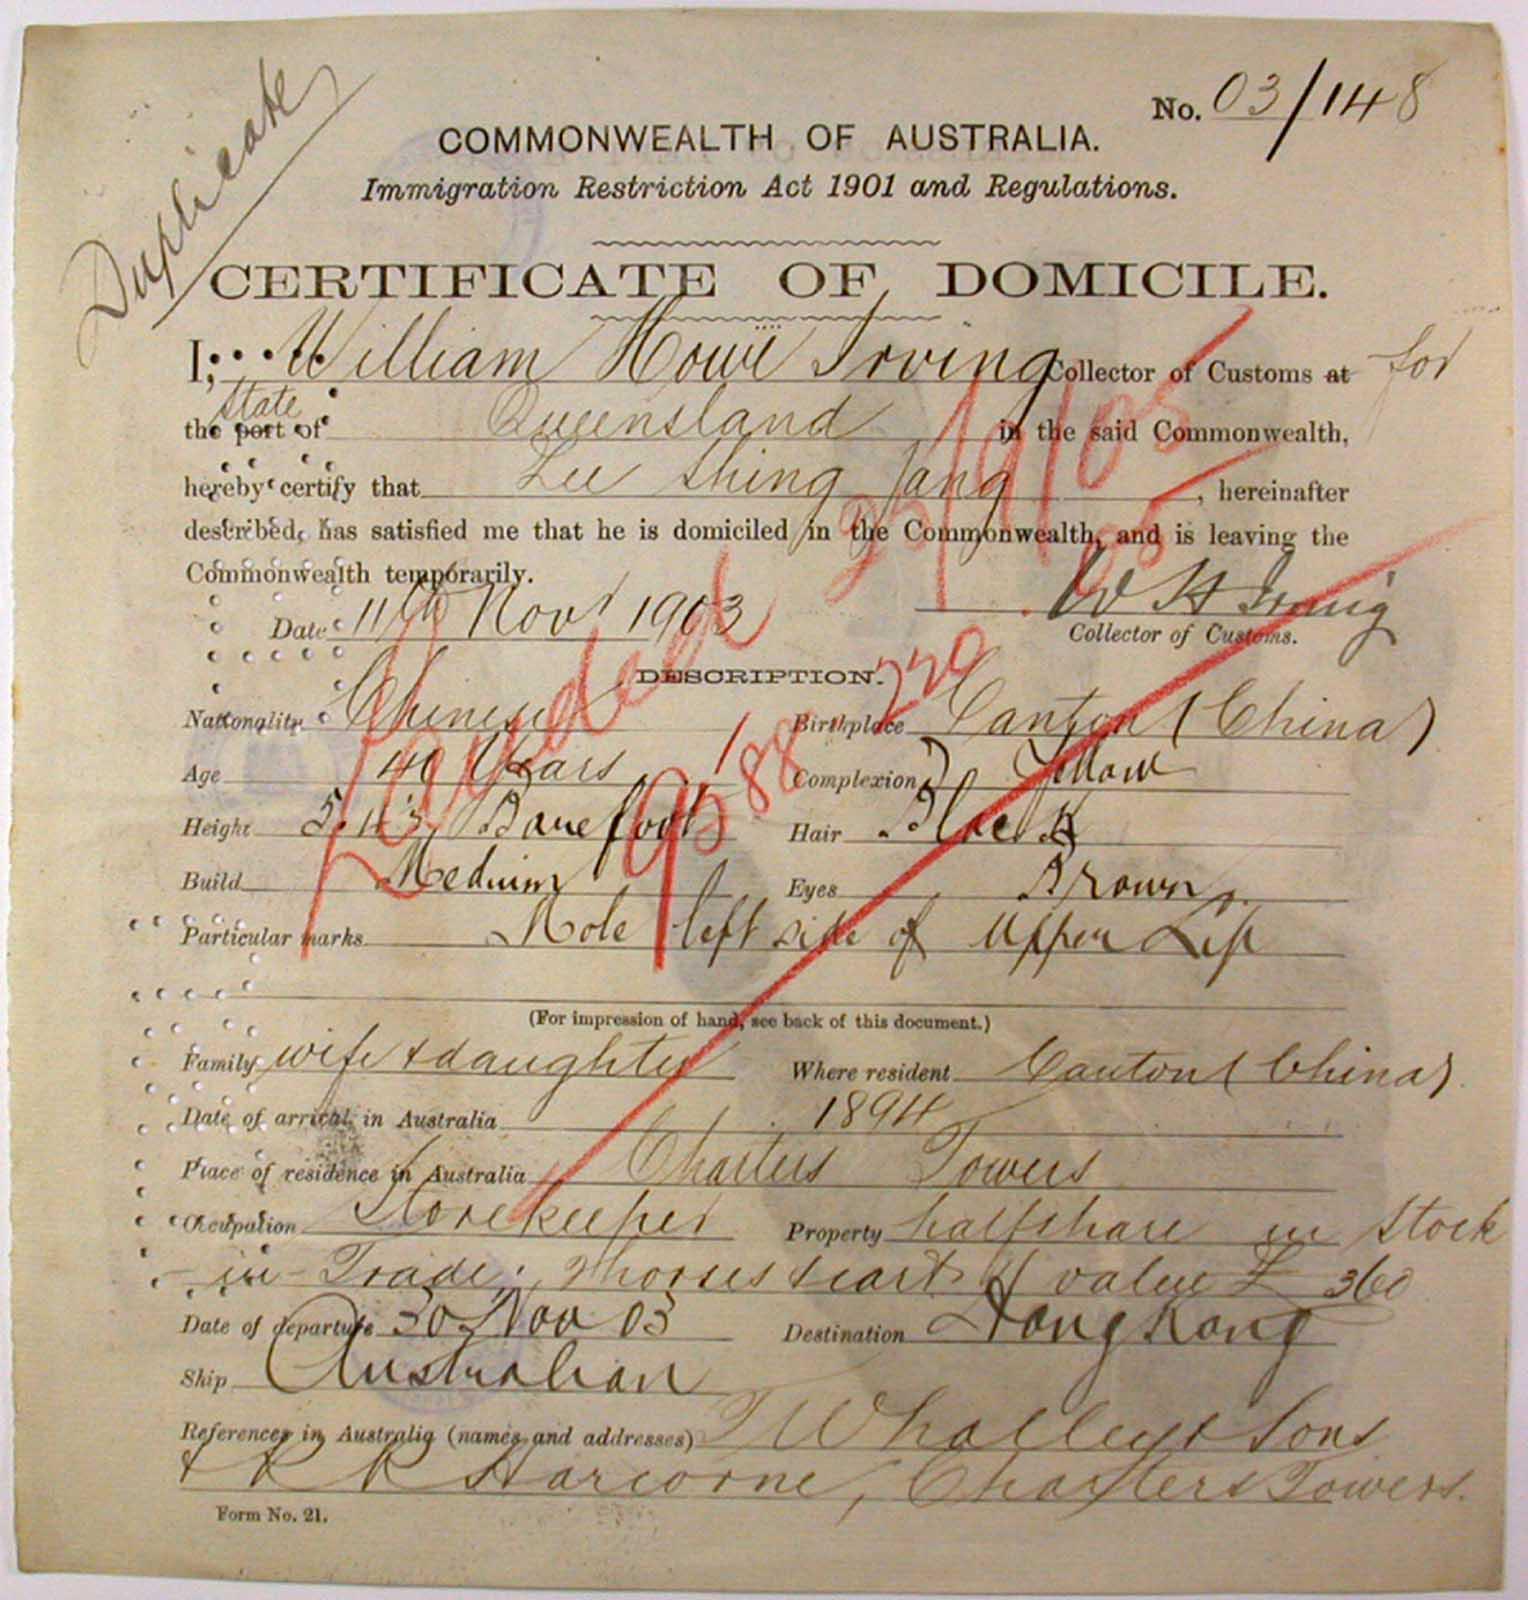 Duplicate
No. 03/148
COMMONWEALTH OF AUSTRALIA.
Immigration Restriction Act 1901 and Regulations.
CERTIFICATE OF DOMICILE.
I, William Howe Irving Collector of Customs at for
the port of State Queensland in the said Commonwealth,
hereby certify that Lee Shing Jang, hereinafter
described, has satisfied me that he is domiciled in the Commonwealth, and is leaving the
Commonwealth temporarily.
Date 11th Nov 1903 W H Irving
Collector of Customs.
Landed
DESCRIPTION.
Nationality Chinese Birthplace Canton (China)
Age 40 Years Complexion Yellow
Height 5.4 Barefoot Hair Black
Build Medium Eyes Brown
Particular marks Mole left side of Upper Lip
(For impression of hand, see back of this document.)
Family wife & daughter Where resident Canton (China)
Date of arrival in Australia 1894
Place of residence in Australia Charters Towers
Occupation Storekeeper Property half share in Stock
in Trade, 2 horses & cart of value £ 360
Date of departure 30 Nov 03 Destination Hong Kong
Ship Australian
References in Australia (names and addresses) T Whalley & Sons
& R R Harcorne, Charters Towers.
Form No. 21.